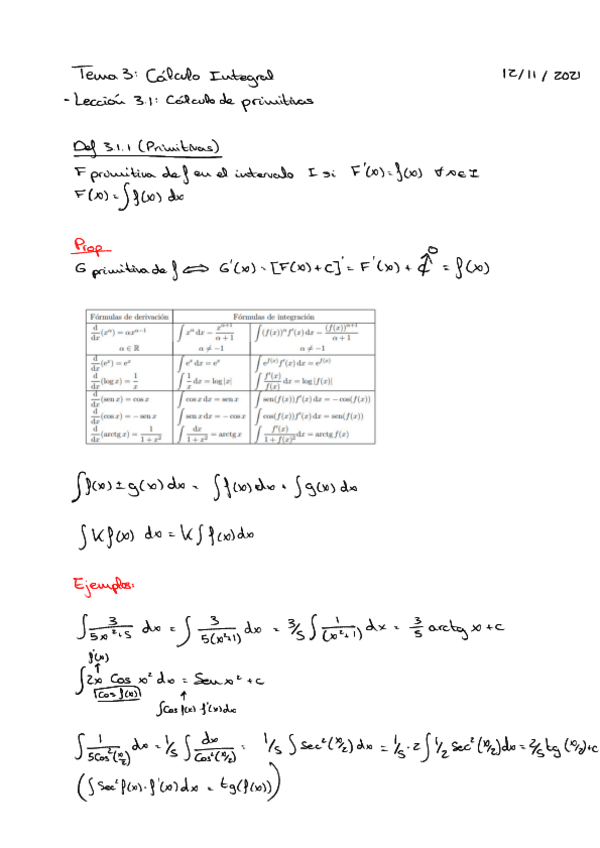 Tema 3: Cálculo Integral 12/11/2021
- Lección 3.1: Cálculo de primitivas
Def 3.1.1 (Primitivas)
F primitiva de f en el intervalo I si F'(x)=f(x) ∀x∈I
F(x)=∫f(x) dx
Prop
G primitiva de f ⟺ G'(x) = [F(x)+C]' = F'(x) + C↗0 = f(x)
Fórmulas de derivación Fórmulas de integración
d/dx (xᵅ) = αxᵅ⁻¹ ∫xᵅ dx = xᵅ⁺¹/(α+1) ∫(f(x))ᵅ f'(x) dx = (f(x))ᵅ⁺¹/(α+1)
α ∈ ℝ α ≠ −1 α ≠ −1
d/dx (eˣ) = eˣ ∫eˣ dx = eˣ ∫e^f(x) f'(x) dx = e^f(x)
d/dx (log x) = 1/x ∫1/x dx = log |x| ∫f'(x)/f(x) dx = log |f(x)|
d/dx (sen x) = cos x ∫cos x dx = sen x ∫sen(f(x))f'(x) dx = − cos(f(x))
d/dx (cos x) = − sen x ∫sen x dx = − cos x ∫cos(f(x))f'(x) dx = sen(f(x))
d/dx (arctg x) = 1/(1+x²) ∫dx/(1+x²) = arctg x ∫f'(x)/(1+f(x)²) dx = arctg f(x)
∫f(x) ± g(x) dx = ∫f(x) dx + ∫g(x) dx
∫K f(x) dx = K∫f(x) dx
Ejemplos:
∫3/(5x²+5) dx = ∫3/(5(x²+1)) dx = 3/5 ∫1/(x²+1) dx = 3/5 arctg x + c
f'(x)
∫2x Cos x² dx = Sen x² + c
Cos f(x)
∫Cos f(x) f'(x) dx
∫1/(5Cos²(x/2)) dx = 1/5 ∫dx/Cos²(x/2) = 1/5 ∫Sec²(x/2) dx = 1/5·2∫1/2 Sec²(x/2) dx = 2/5 tg (x/2)+c
(∫Sec² f(x)·f'(x) dx = tg(f(x)))